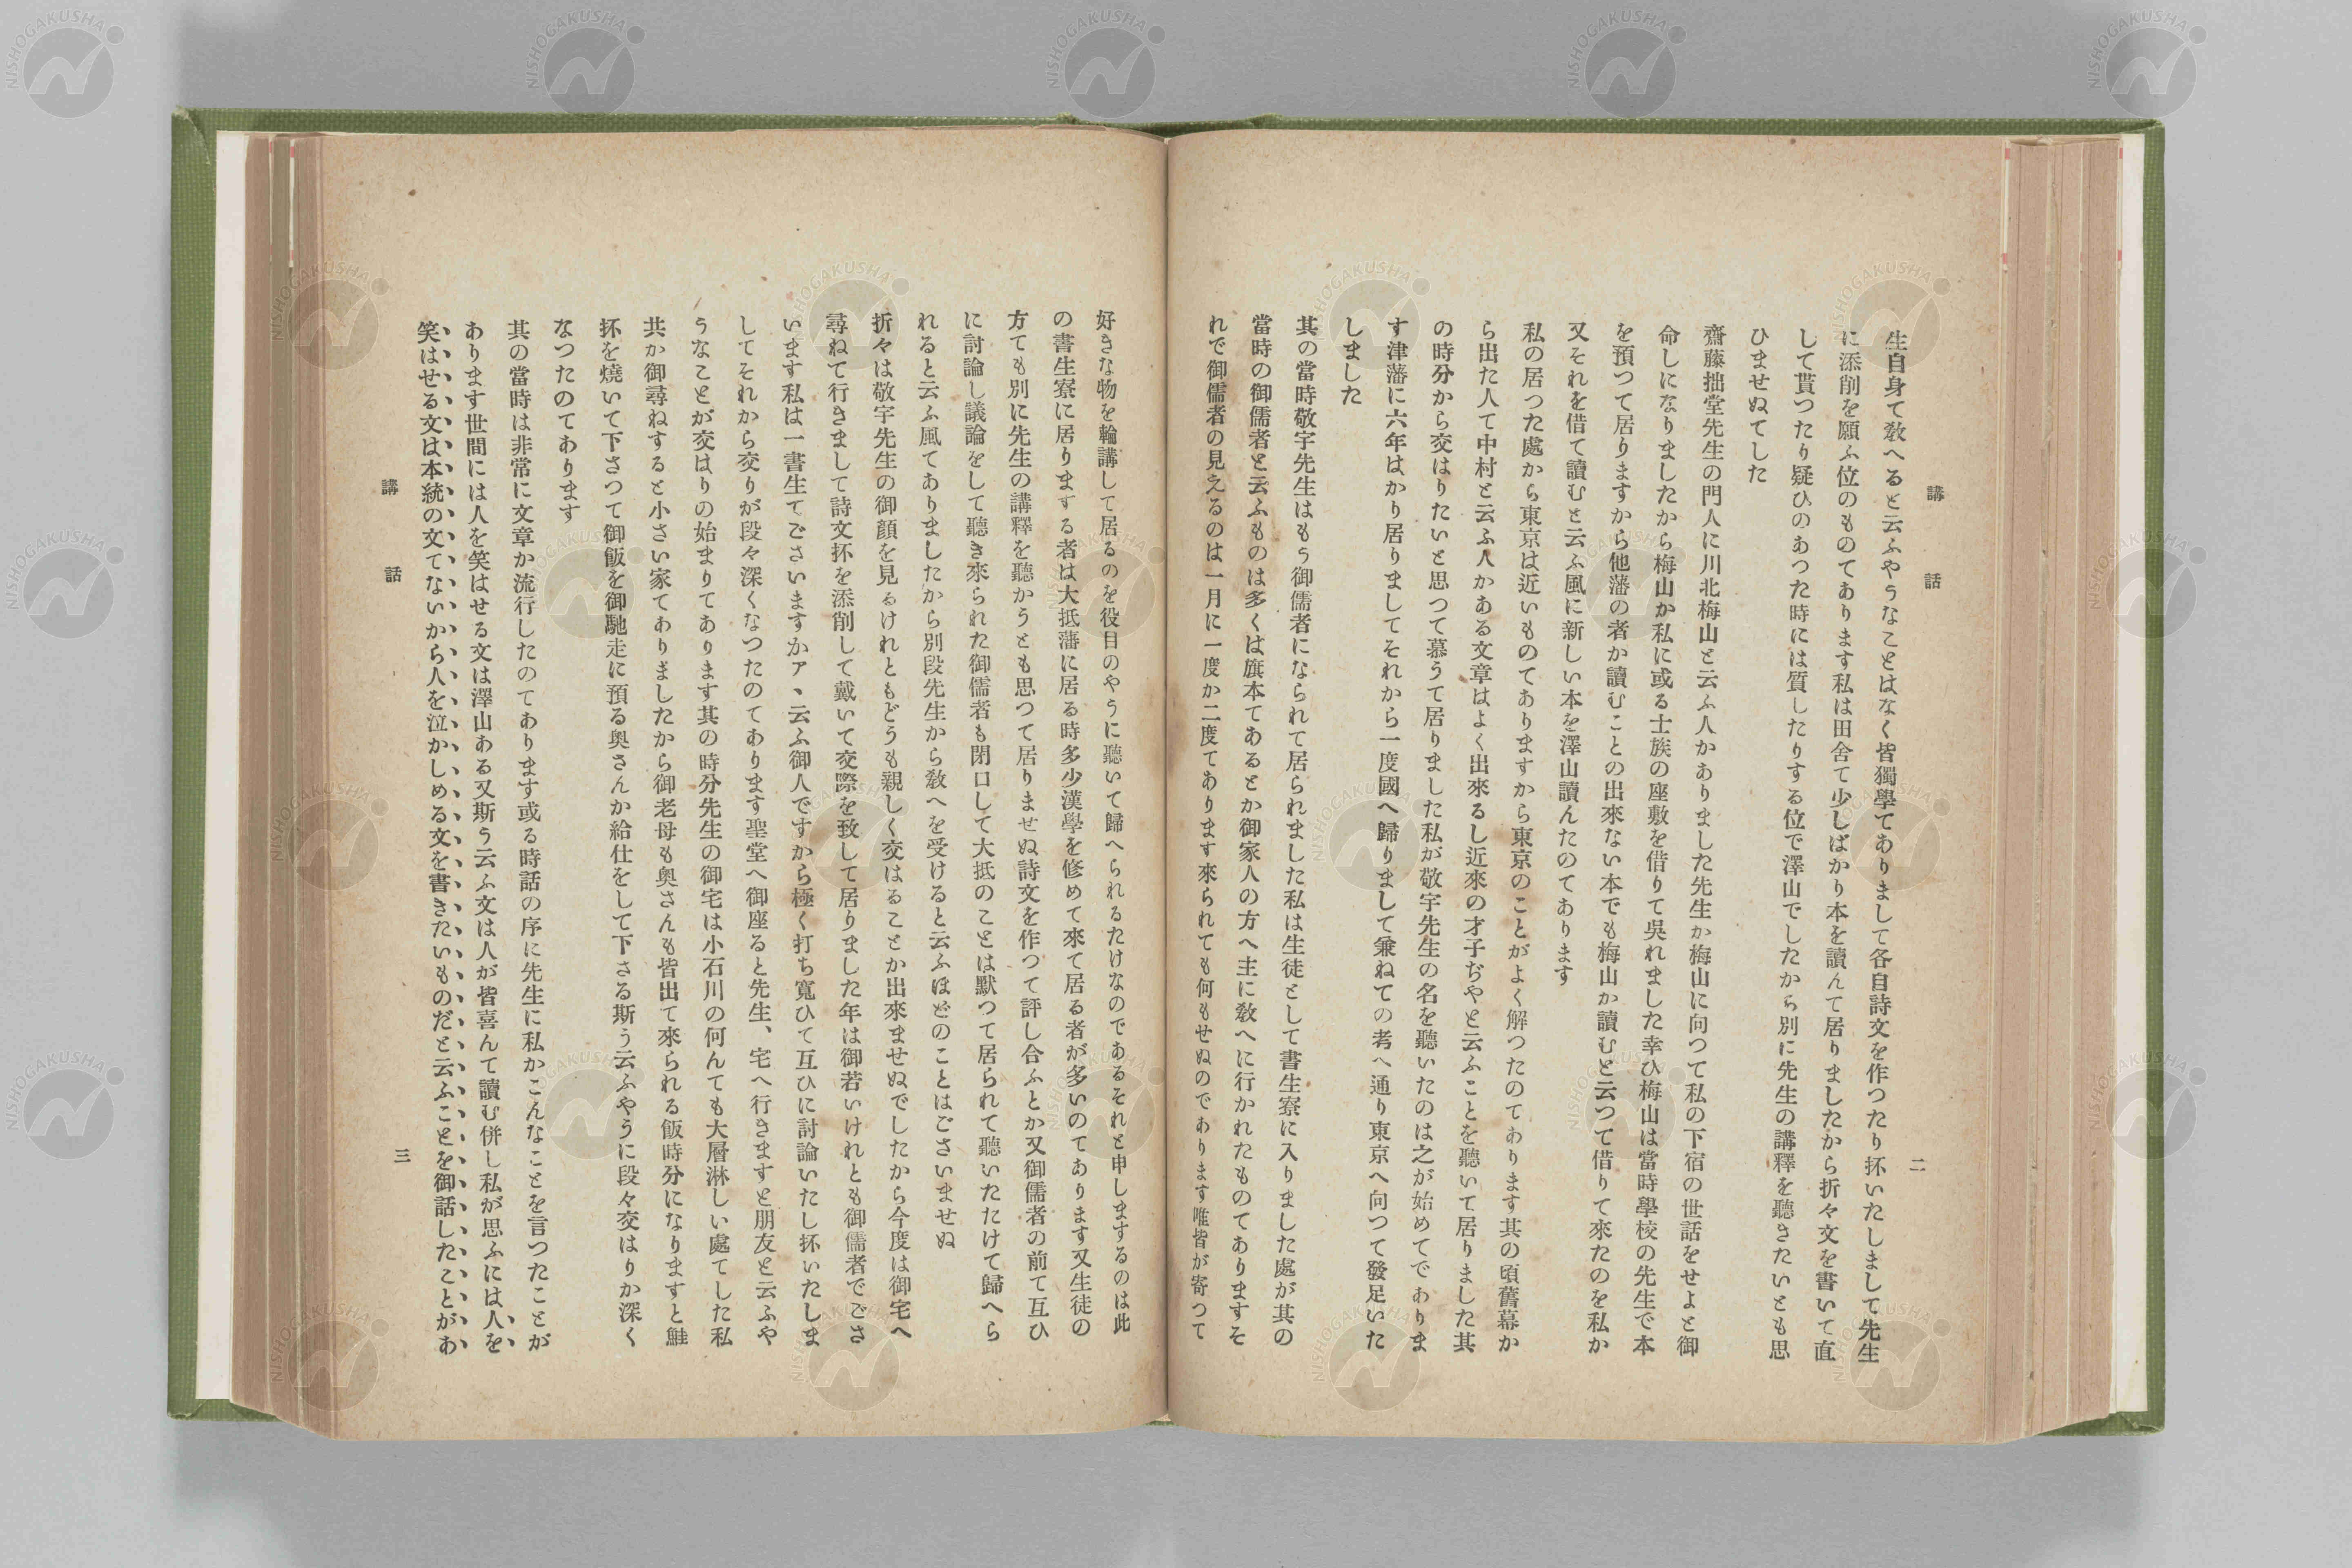 講話
二
生自身て敎へると云ふやうなことはなく皆獨學てありまして各自詩文を作つたり抔いたしまして先生
に添削を願ふ位のものてあります私は田舍て少しばかり本を讀んて居りましたから折々文を書いて直
して貰つたり疑ひのあつた時には質したりする位で澤山でしたから別に先生の講釋を聽きたいとも思
ひませぬてした
齋藤拙堂先生の門人に川北梅山と云ふ人かありました先生か梅山に向つて私の下宿の世話をせよと御
命しになりましたから梅山か私に或る士族の座敷を借りて吳れました幸ひ梅山は當時學校の先生で本
を預つて居りますから他藩の者か讀むことの出來ない本でも梅山か讀むと云つて借りて來たのを私か
又それを借て讀むと云ふ風に新しい本を澤山讀んたのてあります
私の居つた處から東京は近いものてありますから東京のことがよく解つたのてあります其の頃舊幕か
ら出た人て中村と云ふ人かある文章はよく出來るし近來の才子ぢやと云ふことを聽いて居りました其
の時分から交はりたいと思つて慕うて居りました私が敬宇先生の名を聽いたのは之が始めてでありま
す津藩に六年はかり居りましてそれから一度國へ歸りまして兼ねての考へ通り東京へ向つて發足いた
しました
其の當時敬宇先生はもう御儒者になられて居られました私は生徒として書生寮に入りました處が其の
當時の御儒者と云ふものは多くは旗本てあるとか御家人の方へ主に敎へに行かれたものてありますそ
れで御儒者の見えるのは一月に一度か二度てあります來られても何もせぬのであります唯皆が寄つて
好きな物を輪講して居るのを役目のやうに聽いて歸へられるたけなのであるそれと申しまするのは此
の書生寮に居りまする者は大抵藩に居る時多少漢學を修めて來て居る者が多いのてあります又生徒の
方ても別に先生の講釋を聽かうとも思つて居りませぬ詩文を作つて評し合ふとか又御儒者の前て互ひ
に討論し議論をして聽き來られた御儒者も閉口して大抵のことは默つて居られて聽いたたけて歸へら
れると云ふ風てありましたから別段先生から敎へを受けると云ふほどのことはごさいませぬ
折々は敬宇先生の御顏を見るけれともどうも親しく交はることか出來ませぬでしたから今度は御宅へ
尋ねて行きまして詩文抔を添削して戴いて交際を致して居りました年は御若いけれとも御儒者でごさ
います私は一書生てごさいますかア、云ふ御人ですから極く打ち寬ひて互ひに討論いたし抔いたしま
してそれから交りが段々深くなつたのてあります聖堂へ御座ると先生、宅へ行きますと朋友と云ふや
うなことが交はりの始まりてあります其の時分先生の御宅は小石川の何んても大層淋しい處てした私
共か御尋ねすると小さい家てありましたから御老母も奧さんも皆出て來られる飯時分になりますと鮭
抔を燒いて下さつて御飯を御馳走に預る奧さんか給仕をして下さる斯う云ふやうに段々交はりか深く
なつたのてあります
其の當時は非常に文章か流行したのてあります或る時話の序に先生に私かこんなことを言つたことが
あります世間には人を笑はせる文は澤山ある又斯う云ふ文は人が皆喜んて讀む併し私が思ふには人を
笑はせる文は本統の文てないから人を泣かしめる文を書きたいものだと云ふことを御話したことがあ
講話
三